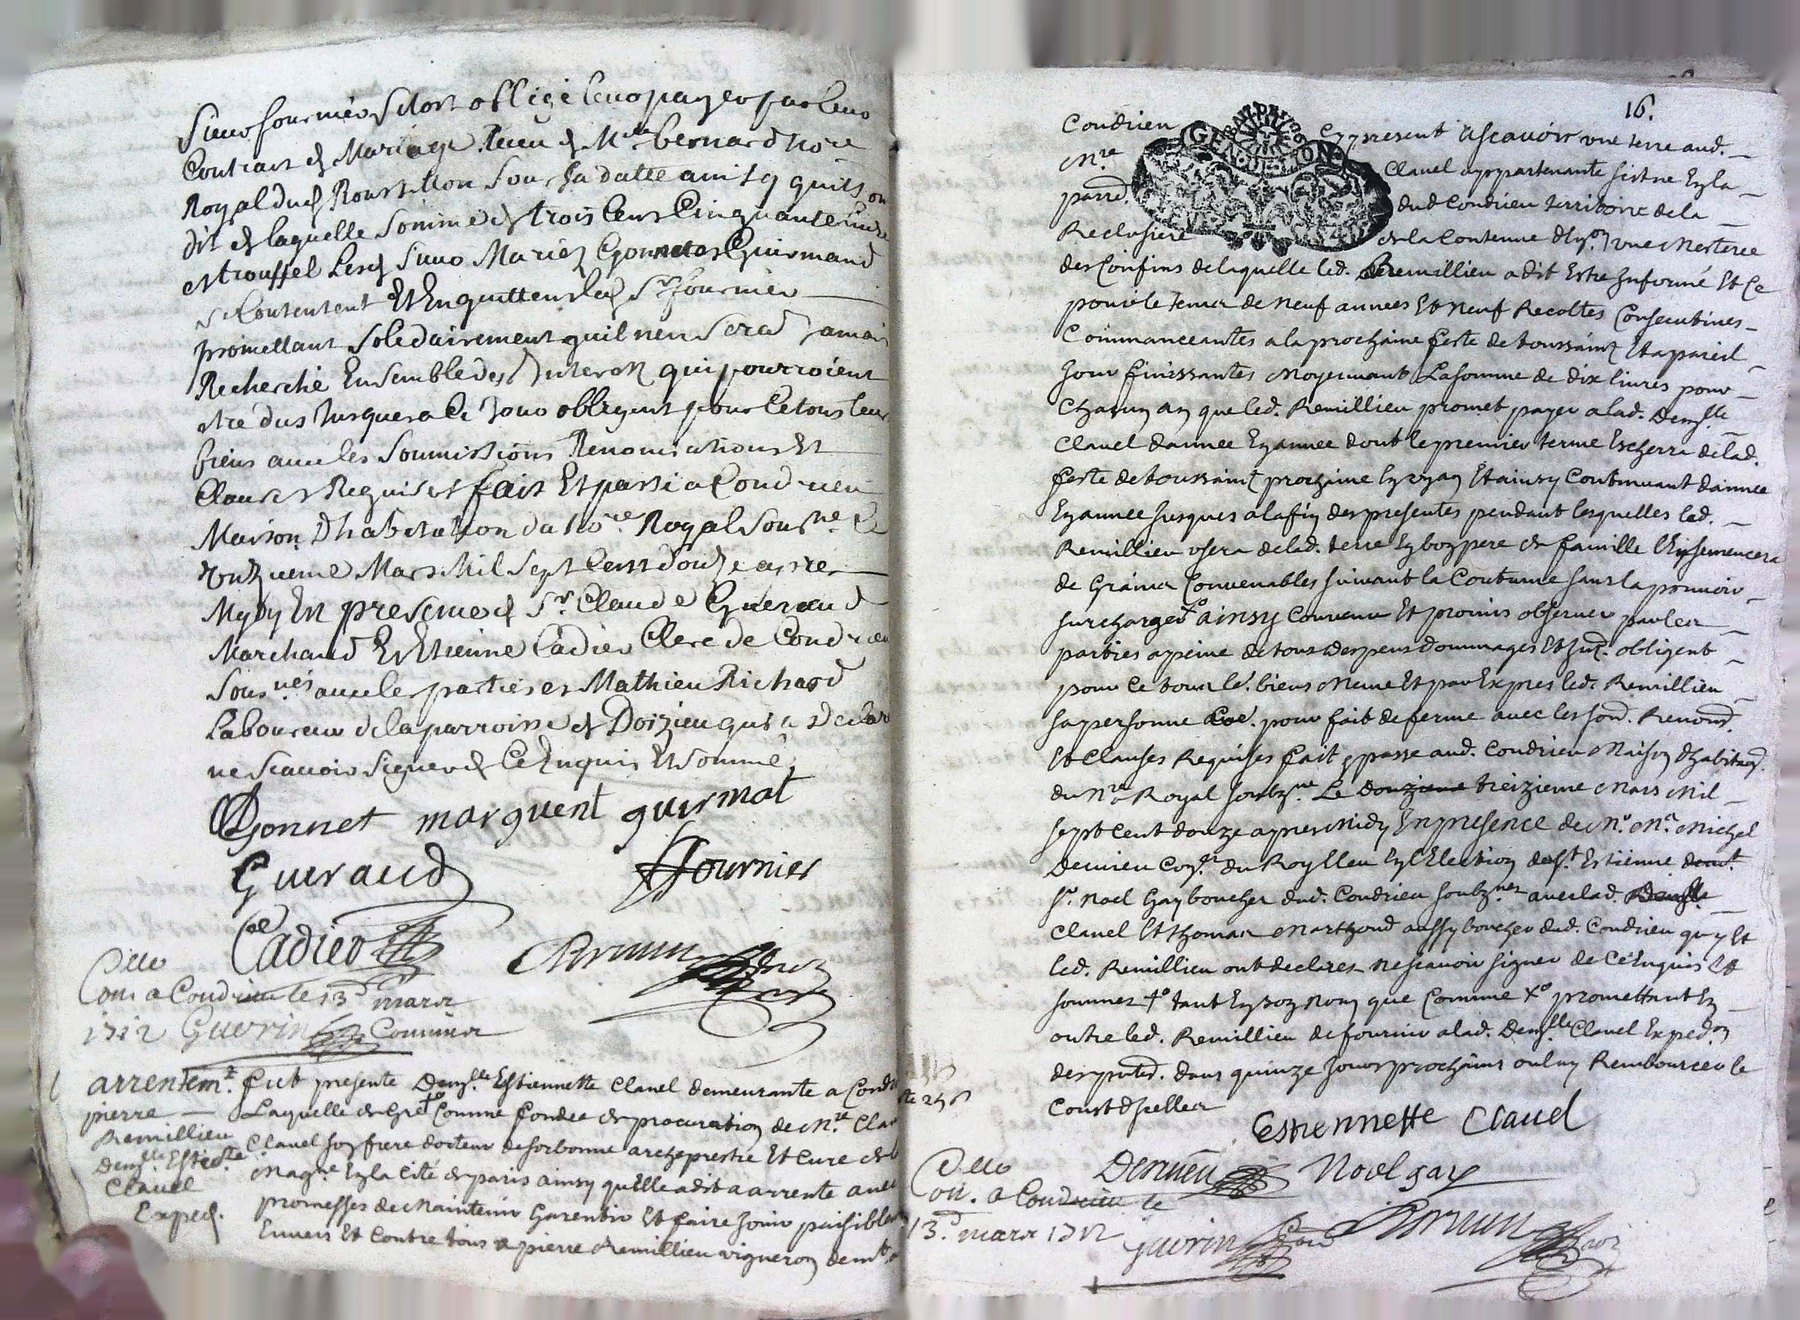 Sieur fournier s'estort obligé leur payer par leur
Contrait de Mariage Receu de Mre bernard nore
Royal dud Roussillon sous sa datte ainsy quils on
dit de laquelle somme de trois cens cinquante
et trouffel Lesd sieur Mariez Gonnet et Guirmand
se Contentent Et Enquittent led Sr fournier
promettant solidairement quil nen sera Jamais
Recherché Ensemble des Interest qui pourroient
estre dus Jusques a Ce Jour obligent pour Ce tous leur
biens avec les soumissions Renonciations Et
Clauses Requises fait Et passé a Condrieu
Maison D'habitation du nore Royal sousne le
onzieme Mars Mil sept Cens douze apres
Mydy En presence de Sr Claude Gueraud
Marchand Et Etienne Cadier Clerc de Condrieu
sousnés avec les parties et Mathieu Richard
Laboureur de la parroisse de Doizieu qui a declaré
ne scavoir signer de Ce Enquis Et sommé
Gonnet marguerit guirmat
Gueraud fournier
Cadier
Collo
Con. a Condrieu le 13d mars
1712 Guerin Commis
arrentemt fut presente Demlle Estiennette Clavel demeurante a Cond
pierre Laquelle de gré to Comme fondée de procuration de Mre Clau
Remillieu Clavel son frere docteur de sorbonne archeprestre Et Curé de
Demlle Estiette Magne En la Cité de paris ainsy quelle a dit a arrenté avec
Clavel promesses de Maintenir Garentir Et faire Jouir paisible
Exped. Envers Et Contre tous a pierre Remillieu vigneron demt a
16.
GEN. DE LION
Condrien cy present Ascavoir une terre aud.
Mre Clavel appartenante sistue En la
parrd. dud Condrieu territoire de la
Reclusiere de la Contenue d'Env.on une Mesterée
des Confins de laquelle led. Remillieu a dit Estre Informé Et Ce
pour le temps de Neuf années Et Neuf Recoltes Consecutives
Commanceantes a la prochaine feste de toussaint Et a pareil
Jour finissantes Moyennant La somme de dix livres pour
Chacun an que led. Remillieu promet payer a lad. Demlle
Clavel d'année En année dont le premier terme Escherra de lad.
feste de toussaint prochaine En un an Et ainsy Continuant d'année
En année Jusques a la fin des presentes pendant lesquelles led.
Remillieu usera de lad. terre En bon pere de famille l'Ensemencera
de Grains Convenables suivant la Coutume sans la pouvoir
surcharger Xo ainsy Convenu Et promis observer par les
parties a peine de tous despens dommages Et Int. obligent
pour Ce tous le. biens Meme Et par Expres led. Remillieu
sa personne pour fait de ferme avec les soud. Renond.
Et Clauses Requises fait & passé aud. Condrieu Maison d'habitaon.
du Nre Royal soubzne Le douzieme treizieme Mars Mil
sept Cent douze apres Midy En presence de Me Mre Michel
Dervieu Coner du Roy Eleu En l'Election de St Estienne demt
Sr. Noel Gay boucher dud. Condrieu soubznes avec lad. Demlle
Clavel Et thomas Marthoud aussy boucher dud. Condrieu qui Et
led. Remillieu ont declarés ne scavoir signer de Ce Enquis Et
sommez to tant En son Nom que Comme Xo promettant En
outre led. Remillieu de fournir a lad. Demlle Clavel Expedon
des presentes. dans quinze Jours prochains ou luy Rembourcer le
Coust d'icelles
Estiennette Clavel
Dervieu Noel gay
Collo
Con. a Condrieu le
13d mars 1712 Guerin